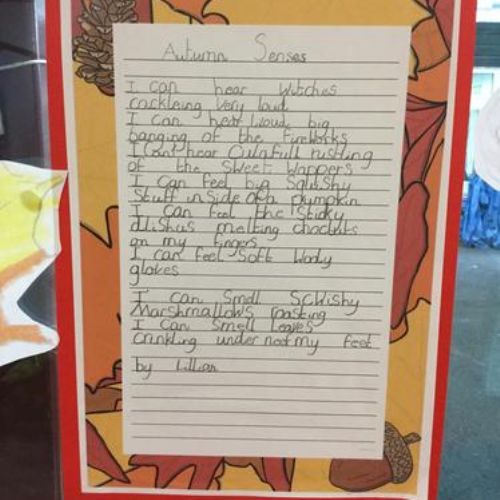 Autumn Senses
I can hear Witches
cackleing very loud
I can hear loud big
banging of the fireworks
I cant hear Culafull rustling
of the Sweet wappers
I can feel big Squishy
Stuff inside of a pumpkin
I can feel the sticky
dlishus melting choclats
on my fingers
I can feel Soft Wooly
gloves
I can Smell Sqwishy
Marshmallows roasting
I can Smell Leaves
Crinkling under neet my feet
by Lillian